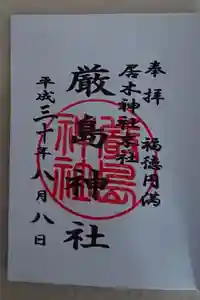 奉拝 福徳円満
居木神社末社
厳島神社
平成三十年八月八日
厳島神社